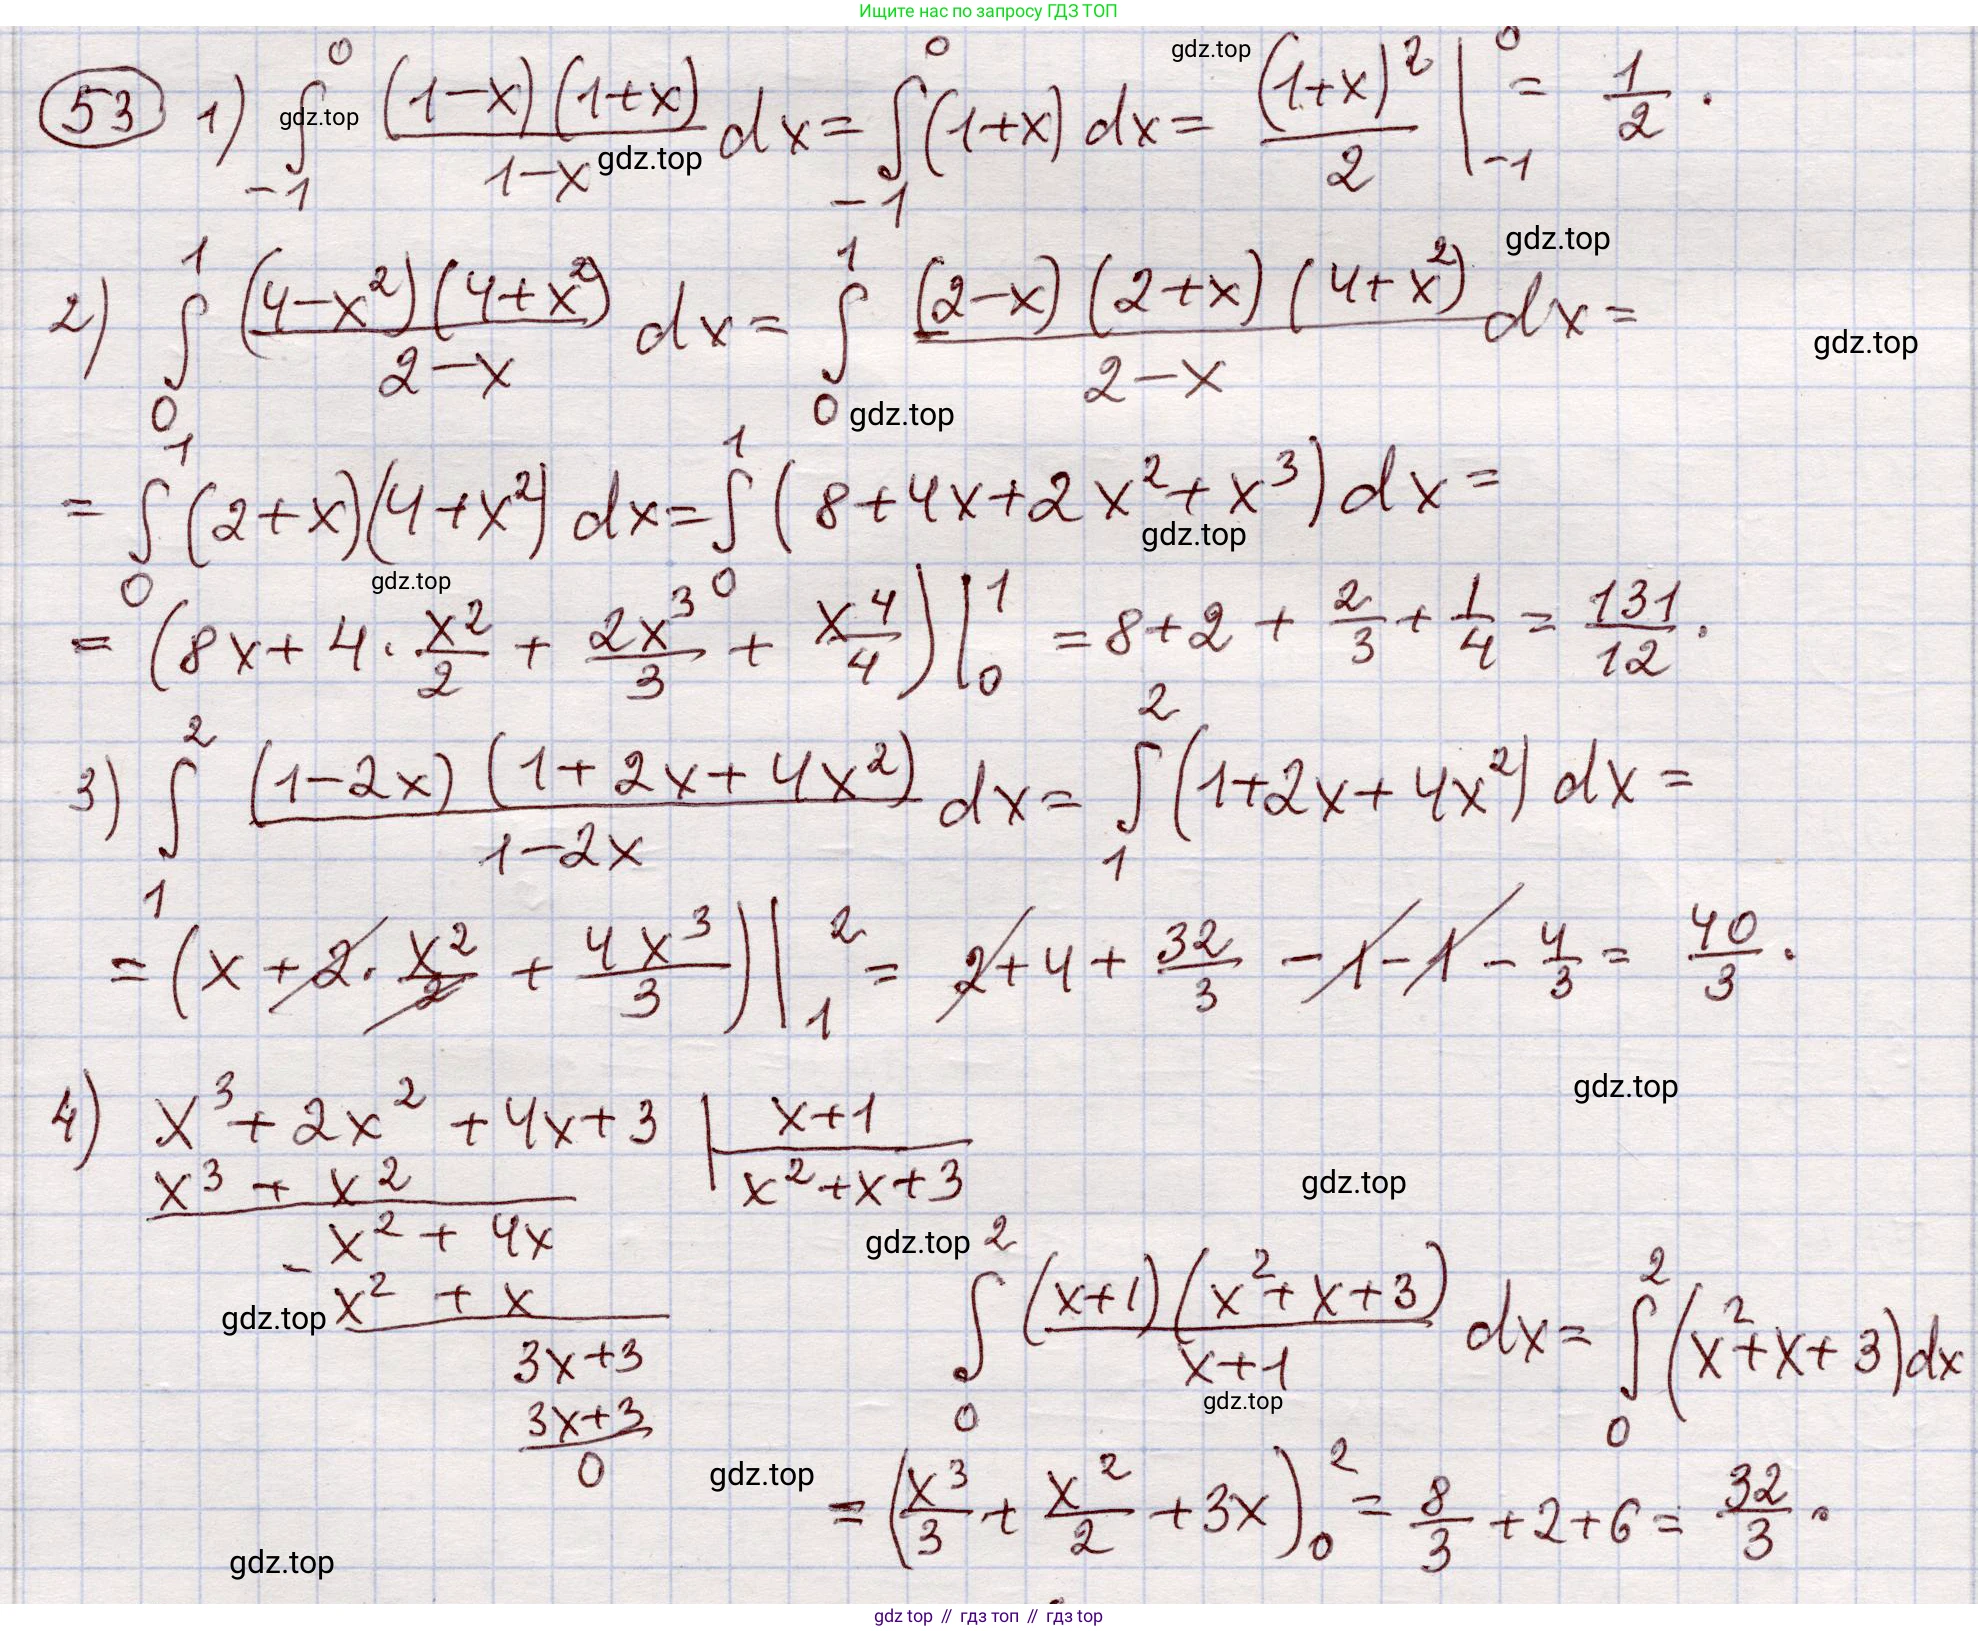 Ищите нас по запросу ГДЗ ТОП
53 1) ∫_{-1}^{0} (1-x)(1+x)/(1-x) dx = ∫_{-1}^{0} (1+x) dx = (1+x)^2/2 |_{-1}^{0} = 1/2.
gdz.top gdz.top gdz.top
gdz.top
2) ∫_0^1 (4-x^2)(4+x^2)/(2-x) dx = ∫_0^1 (2-x)(2+x)(4+x^2)/(2-x) dx =
gdz.top gdz.top
= ∫_0^1 (2+x)(4+x^2) dx = ∫_0^1 (8+4x+2x^2+x^3) dx =
gdz.top gdz.top
= (8x + 4·x^2/2 + 2x^3/3 + x^4/4) |_0^1 = 8+2+2/3+1/4 = 131/12.
3) ∫_1^2 (1-2x)(1+2x+4x^2)/(1-2x) dx = ∫_1^2 (1+2x+4x^2) dx =
= (x + 2·x^2/2 + 4x^3/3) |_1^2 = 2+4+32/3-1-1-4/3 = 40/3.
gdz.top
4) x^3+2x^2+4x+3 | x+1
x^3+x^2 | x^2+x+3
gdz.top
x^2+4x
gdz.top
- x^2+x
gdz.top
3x+3
3x+3
0
∫_0^2 (x+1)(x^2+x+3)/(x+1) dx = ∫_0^2 (x^2+x+3)dx
gdz.top
gdz.top
= (x^3/3 + x^2/2 + 3x)_0^2 = 8/3+2+6 = 32/3.
gdz.top
gdz top // гдз топ // гдз top